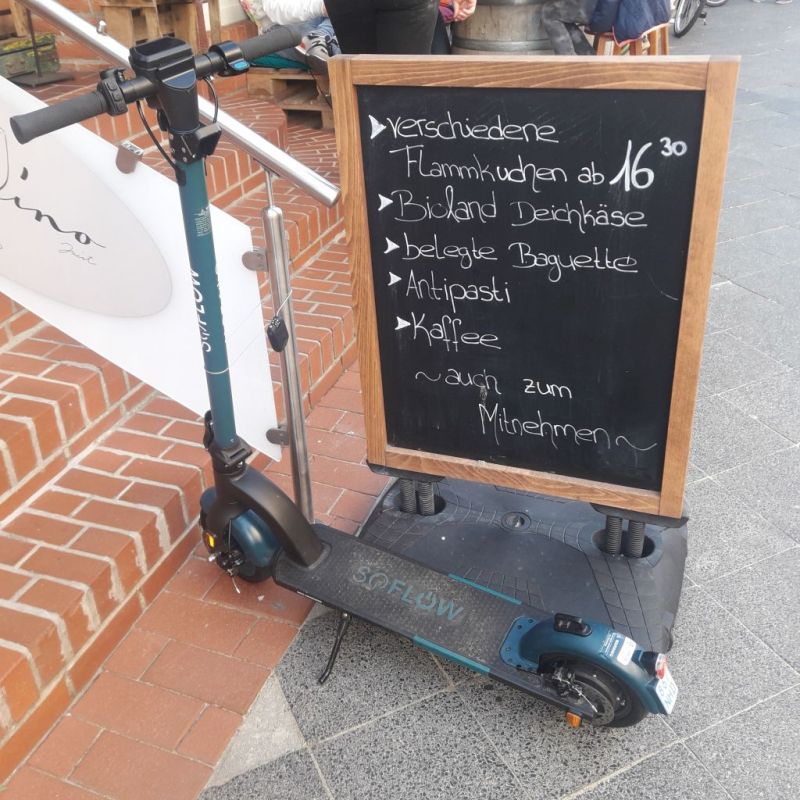 verschiedene
Flammkuchen ab 16 30
Bioland Deichkäse
belegte Baguette
Antipasti
Kaffee
~ auch zum
Mitnehmen ~
Vino
SOFLOW
SOFLOW